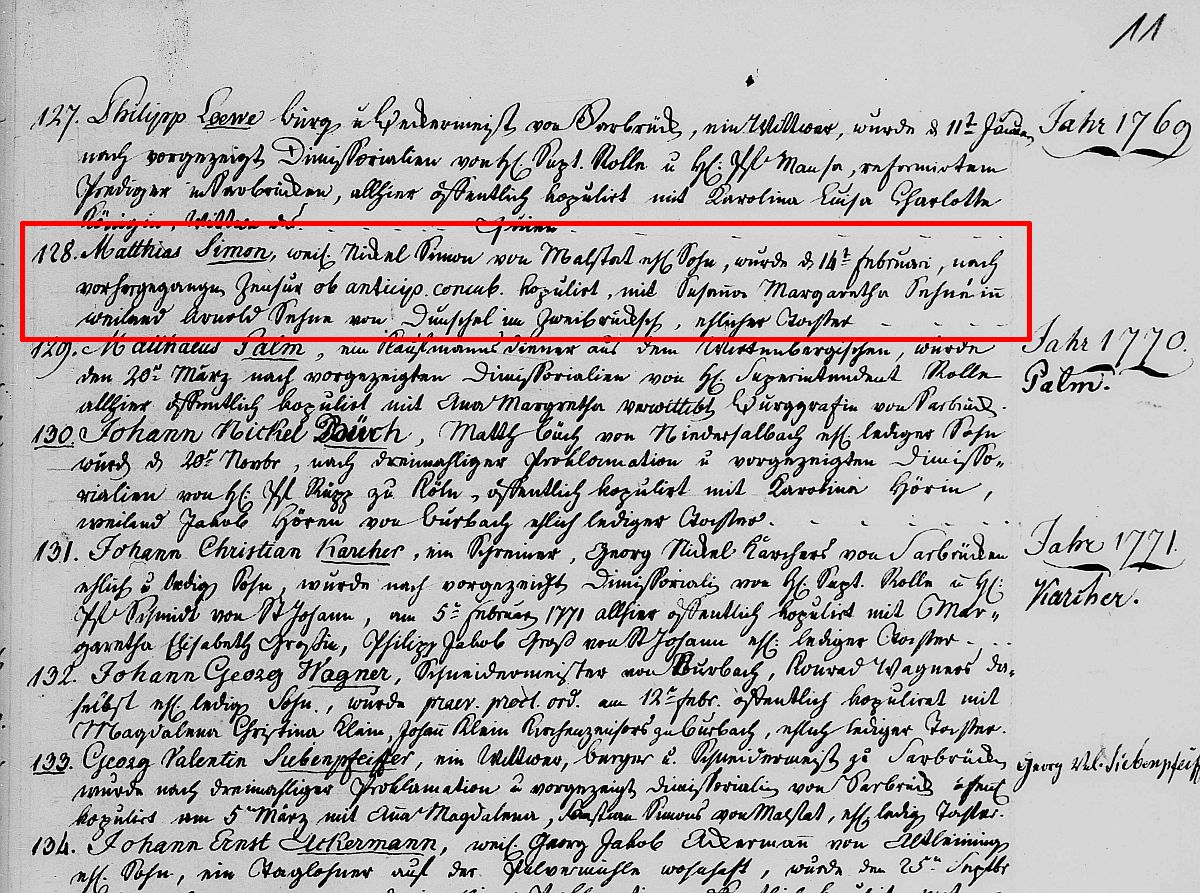 11
127. Philipp Loewe burg. u Beckermeist von Sarbrück, ein Wittwer, wurde d 11t Januar
Jahr 1769
nach vorgezeigt Dimissorialien von H. Supt. Rolle u H: Pf Mansa, reformirtem
Prediger in Sarbrücken, allhier öffentlich kopulirt mit Karolina Luisa Charlotte
Königin, Wittwe
128. Matthias Simon, weil. Nickel Simon von Malstat ehl Sohn, wurde d 14t Februari, nach
vorhergegangn Zensur ob anticip. concub. kopulirt, mit Susanna Margaretha Sehné in
weiland Arnold Sehne von Dunschel im Zweibrücksch, ehlicher Tochter
129. Matthaeus Palm, ein Kaufmanns diener aus dem Wirtenbergischen, wurde
Jahr 1770.
den 20t März nach vorgezeigten Dimissorialien von H Superintendent Rolle
Palm.
allhier öffentlich kopulirt mit Ana Margretha verwittibt Burggrafin von Sarbrück.
130. Johann Nickel Büch, Matth Büch von Niedersalbach ehl lediger Sohn
wurd d 20t Novbr, nach dreimahliger Proklamation u vorgezeigten Dimisso-
rialien von H: Pf Rupp zu Köln, öffentlich kopulirt mit Karolina Hörin,
weiland Jakob Hören von Burbach ehlich lediger Tochter.
131. Johann Christian Karcher, ein Schreiner, Georg Nickel Karchers von Sarbrücken
Jahr 1771.
ehlich u ledig Sohn, wurde nach vorgezeigt Dimissoriali von H. Supt. Rolle u H:
Karcher.
Pf Schmidt von St Johann, am 5t Februar 1771 allhier öffentlich kopulirt mit Mar-
garetha Elisabeth Großin, Philipp Jakob Groß von St Johann ehl lediger Tochter
132. Johann Georg Wagner, Schneidermeister von Burbach, Konrad Wagners da-
selbst ehl ledig Sohn, wurde praev. procl. ord. am 12t Febr. öffentlich kopulirt mit
Magdalena Christina Klein, Johann Klein Kirchenzensors zu Burbach, ehlich lediger Tochter.
133. Georg Valentin Siebenpfeiffer, ein Wittwer, berger u. Schneidermeist zu Sarbrücken
Georg Val. Siebenpfeif
wurde nach dreimahliger Proklamation u vorgezeigt Dimissorialin von Sarbrück öffentl
kopulirt am 5n März mit Ana Magdalena, Bastian Simons von Malstat, ehl ledig Tochter.
134. Johann Ernst Ackermann, weil. Georg Jakob Ackermann von Altleining
ehl. Sohn, ein Taglohner auf der Pulvermühle wohnhaft, wurde den 25n Septbr